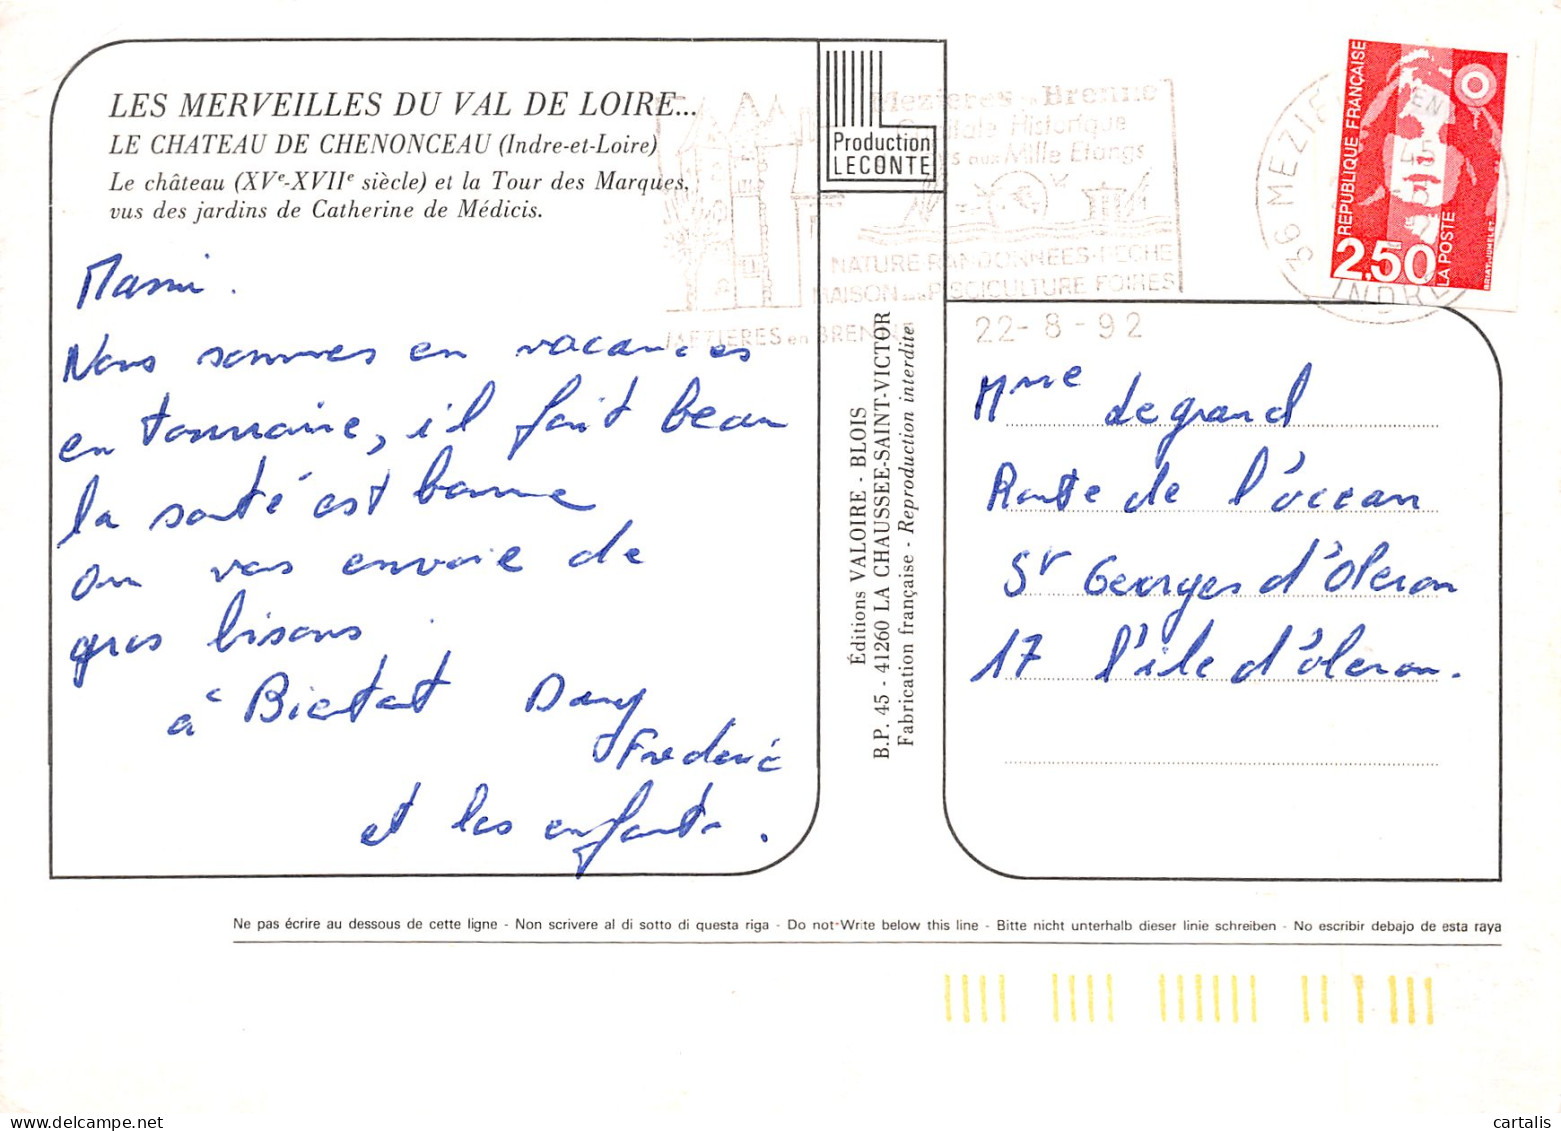 LES MERVEILLES DU VAL DE LOIRE...
LE CHATEAU DE CHENONCEAU (Indre-et-Loire)
Le château (XVe-XVIIe siècle) et la Tour des Marques,
vus des jardins de Catherine de Médicis.
Mami.
Nous sommes en vacances
en Tourraine, il fait beau
la santé est bonne
on vous envoie de
gros bisous.
à Bientot Dany
Frederic
et les enfants.
Production
LECONTE
Mezieres en Brenne
Capitale Historique
Pays aux Mille Etangs
NATURE RANDONNEES-PECHE
MAISON de la PISCICULTURE FOIRES
MEZIERES en BRENNE
22-8-92
36 MEZIERES EN
INDRE
REPUBLIQUE FRANÇAISE
2,50
LA POSTE
Éditions VALOIRE - BLOIS
B.P. 45 - 41260 LA CHAUSSEE-SAINT-VICTOR
Fabrication française - Reproduction interdite
Mme Legrand
Route de l'océan
St Georges d'Oleron
17 l'ile d'óleron.
Ne pas écrire au dessous de cette ligne - Non scrivere al di sotto di questa riga - Do not Write below this line - Bitte nicht unterhalb dieser linie schreiben - No escribir debajo de esta raya
cartalis